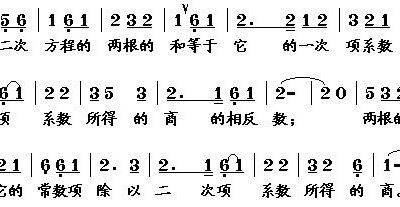 5 6 | 1 6 1 | 2 3 2 | 1 6 1 | 2. 2 | 1 2 | 3 2 1
二次 方程的 两根的 和等于 它 的一次 项系数
6 1 | 2 2 | 3 5 3 | 2. 1 | 6 1 | 2- | 2 0 | 5 3 2
项 系数 所得 的 商 的 相反 数； 两根的
2 1 | 6 6 1 | 2. 3 | 2. 1 | 6 1 | 2 2 | 3 2 | 6 1
它的 常数项 除 以 二 次项 系数 所得 的商。